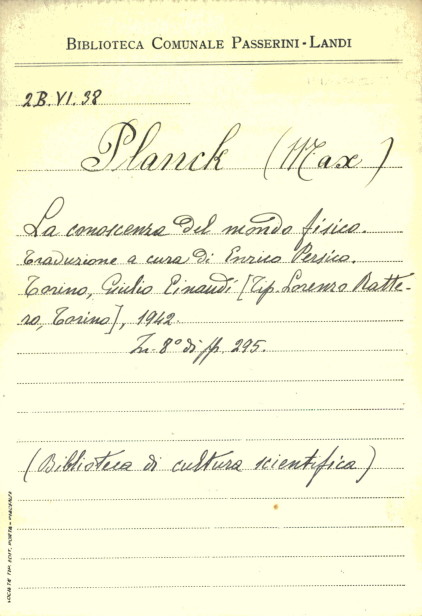 BIBLIOTECA COMUNALE PASSERINI-LANDI
2B.VI.38
Planck (Max)
La conoscenza del mondo fisico.
Traduzione a cura di Enrico Persico.
Torino, Giulio Einaudi [Tip. Lorenzo Ratte-
ro, Torino], 1942.
In 8° di pp. 295.
(Biblioteca di cultura scientifica)